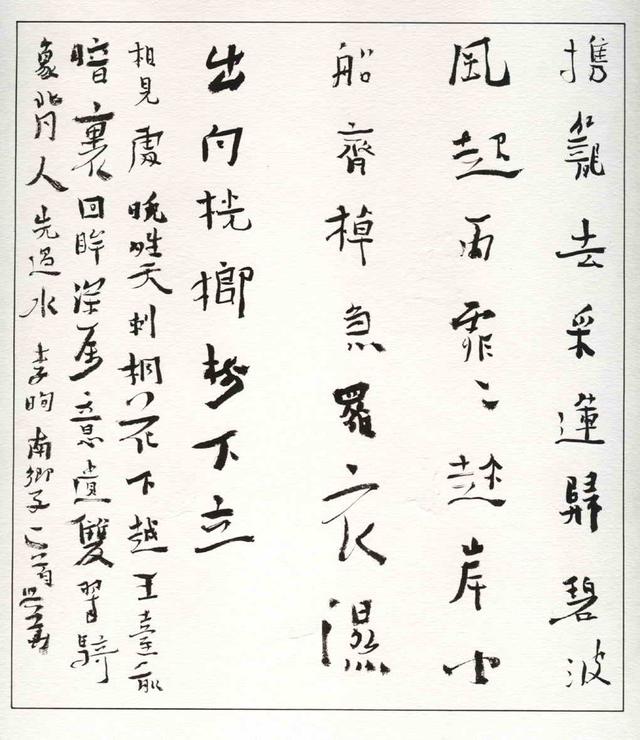 携籠去采蓮歸碧波
風起雨霏〻趁岸小
船齊棹急羅衣濕
出向桄榔樹下立
相見處晚晴天刺桐花下越王臺前
暗裏回眸深屬意遺雙翠騎
象背人先過水 李珣南鄉子二首